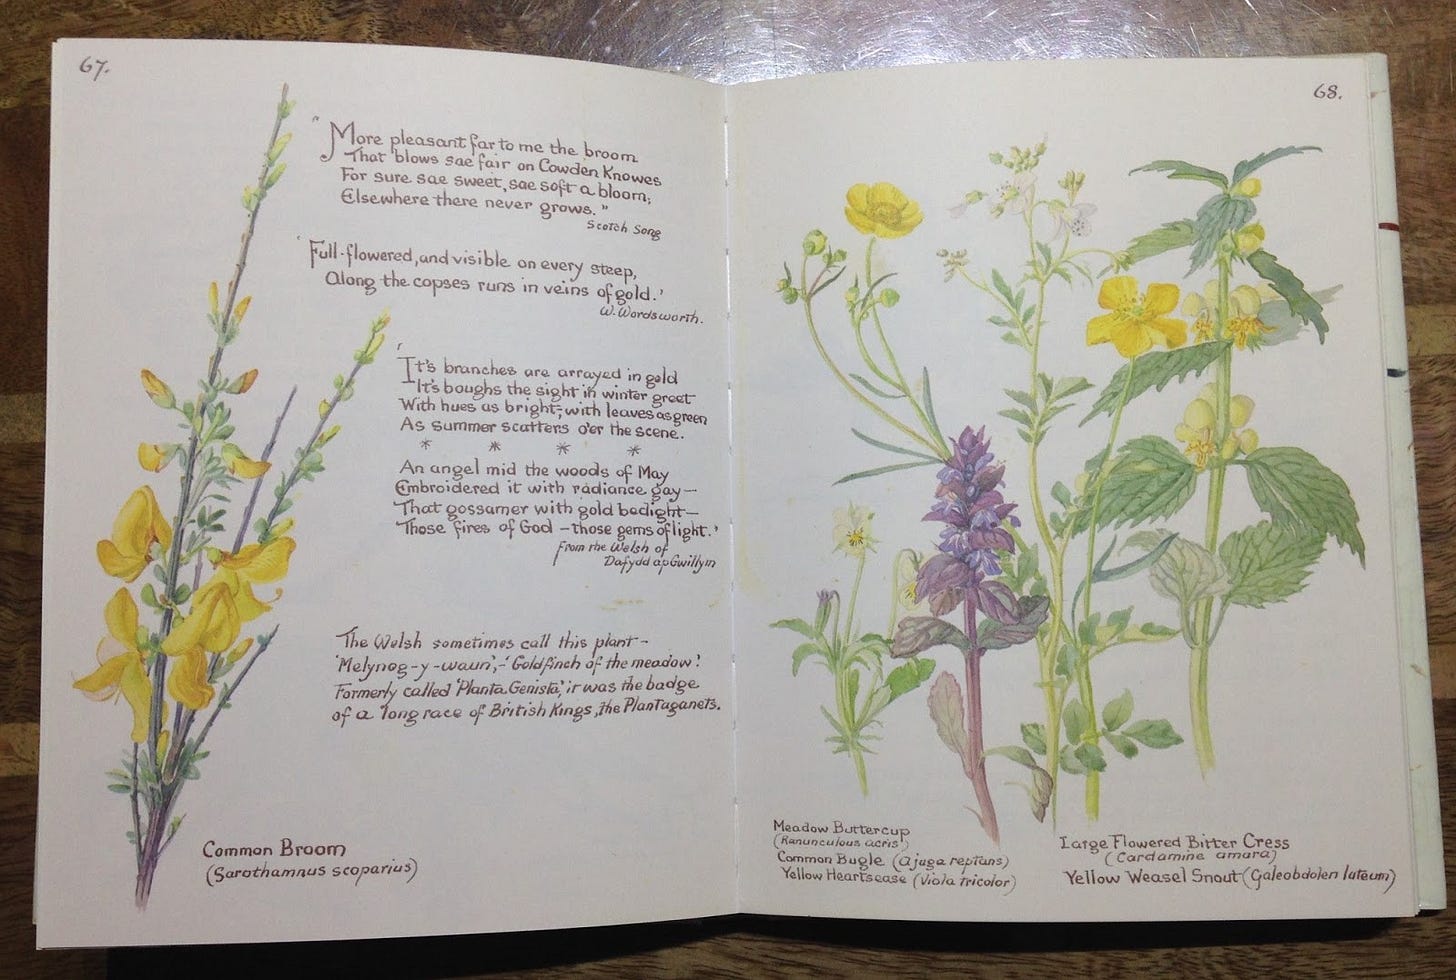 67.
"More pleasant far to me the broom
That blows sae fair on Cowden Knowes
For sure sae sweet, sae soft a bloom;
Elsewhere there never grows."
Scotch Song
'Full-flowered, and visible on every steep,
Along the copses runs in veins of gold.'
W. Wordsworth.
'It's branches are arrayed in gold
It's boughs the sight in winter greet
With hues as bright; with leaves as green
As summer scatters o'er the scene.
* * * *
An angel mid the woods of May
Embroidered it with radiance gay—
That gossamer with gold bedight—
Those fires of God—those gems of light.'
From the Welsh of
Dafydd ap Gwillym
The Welsh sometimes call this plant—
'Melynog-y-waun',-'Goldfinch of the meadow'.
Formerly called 'Planta Genista', it was the badge
of a long race of British Kings, the Plantagenets.
Common Broom
(Sarothamnus scoparius)
68.
Meadow Buttercup
(Ranunculous acris)
Common Bugle (Ajuga reptans)
Yellow Heartsease (Viola tricolor)
Large Flowered Bitter Cress
(Cardamine amara)
Yellow Weasel Snout (Galeobdolen luteum)